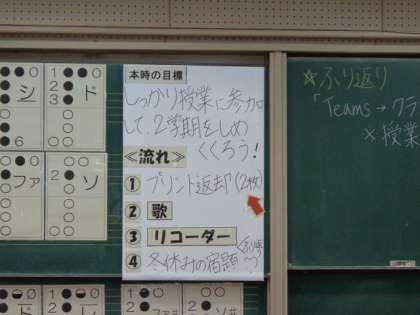 シ
6
1
2
3
ド
ファ
2
ソ
本時の目標
しっかり授業に参加
して、2学期をしめ
くくろう!
≪流れ≫
① プリント返却(2枚)
② 歌
③ リコーダー
④ 冬休みの宿題
☆ふり返り
「Teams→クラ
×授業
ド
レ
ファ#
ソ#